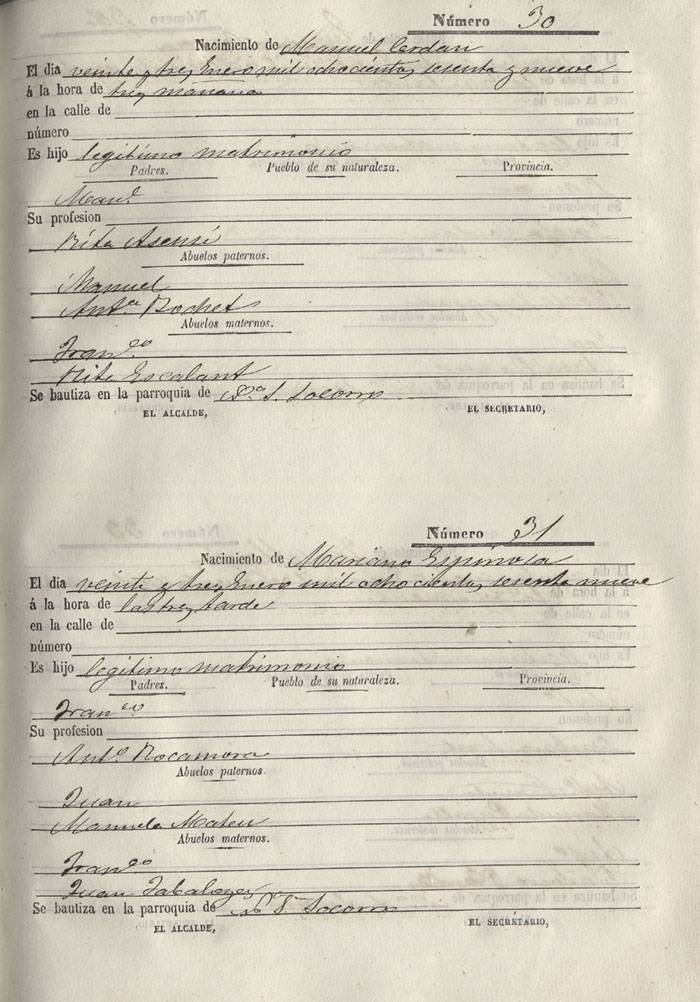 Número 30
Nacimiento de Manuel Cerdan
El dia veinte y tres Enero mil ochocientos sesenta y nueve
á la hora de tres mañana
en la calle de
número
Es hijo legitimo matrimonio
Padres. Pueblo de su naturaleza. Provincia.
Manl
Su profesion
Rita Asensi
Abuelos paternos.
Manuel
Anta Bochet
Abuelos maternos.
Franco
Rita Escalant
Se bautiza en la parroquia de Socorro
EL ALCALDE, EL SECRETARIO,
Número 31
Nacimiento de Mariano Espinosa
El dia veinte y tres Enero mil ochocientos sesenta nueve
á la hora de las tres tarde
en la calle de
número
Es hijo legitimo matrimonio
Padres. Pueblo de su naturaleza. Provincia.
Franco
Su profesion
Anta Rocamora
Abuelos paternos.
Juan
Manuela Mateu
Abuelos maternos.
Franco
Juan
Se bautiza en la parroquia de Socorro
EL ALCALDE, EL SECRETARIO,